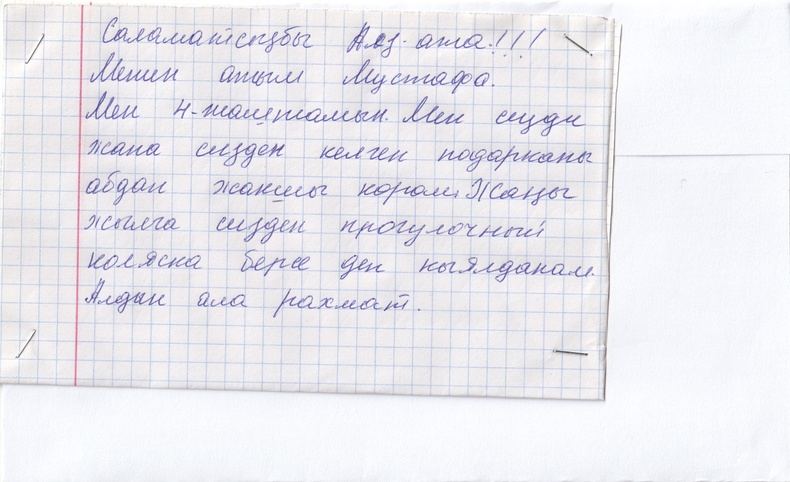 Саламатсызбы Аяз-ата!!!
Менин атым Мустафа.
Мен 4-жаштамын. Мен сизди
жана сизден келген подарканы
абдан жакшы кором. Жаңы
жылга сизден прогулочный
коляска берсе ден кыялданам.
Алдын ала рахмат.